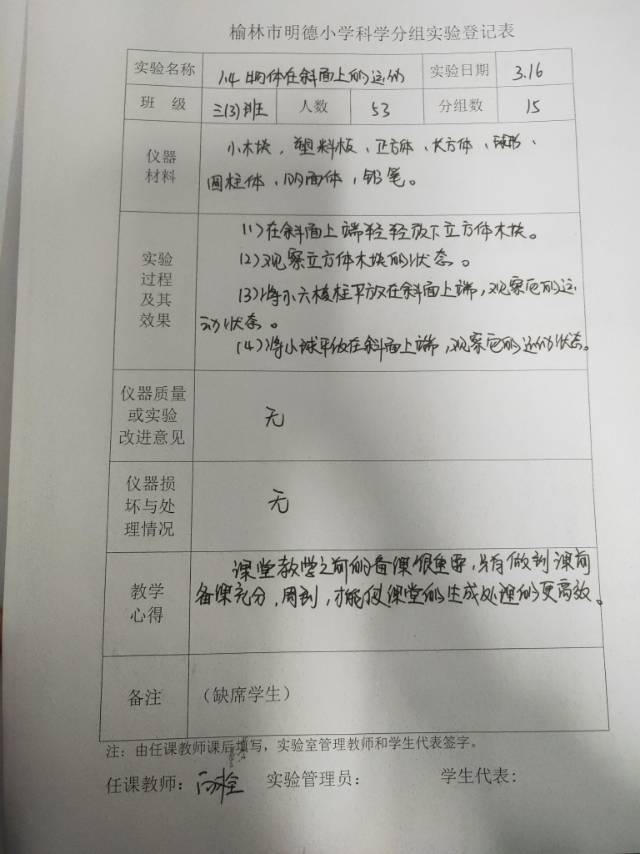 榆林市明德小学科学分组实验登记表
实验名称 1.4 物体在斜面上的运动 实验日期 3.16
班 级 三(3)班 人数 53 分组数 15
仪器材料 小木块，塑料板，正方体，长方体，球形、
圆柱体，四面体，铅笔。
实验过程及其效果 (1)在斜面上端轻轻放下立方体木块。
(2)观察立方体木块的状态。
(3)将小六棱柱平放在斜面上端，观察它的运
动状态。
(4)将小球平放在斜面上端，观察它的运动状态。
仪器质量或实验改进意见 无
仪器损坏与处理情况 无
教学心得 课堂教学之前的备课很重要，只有做到课前
备课充分，周到，才能使课堂的生成处理的更高效。
备注 （缺席学生）
注：由任课教师课后填写，实验室管理教师和学生代表签字。
任课教师： 实验管理员： 学生代表：